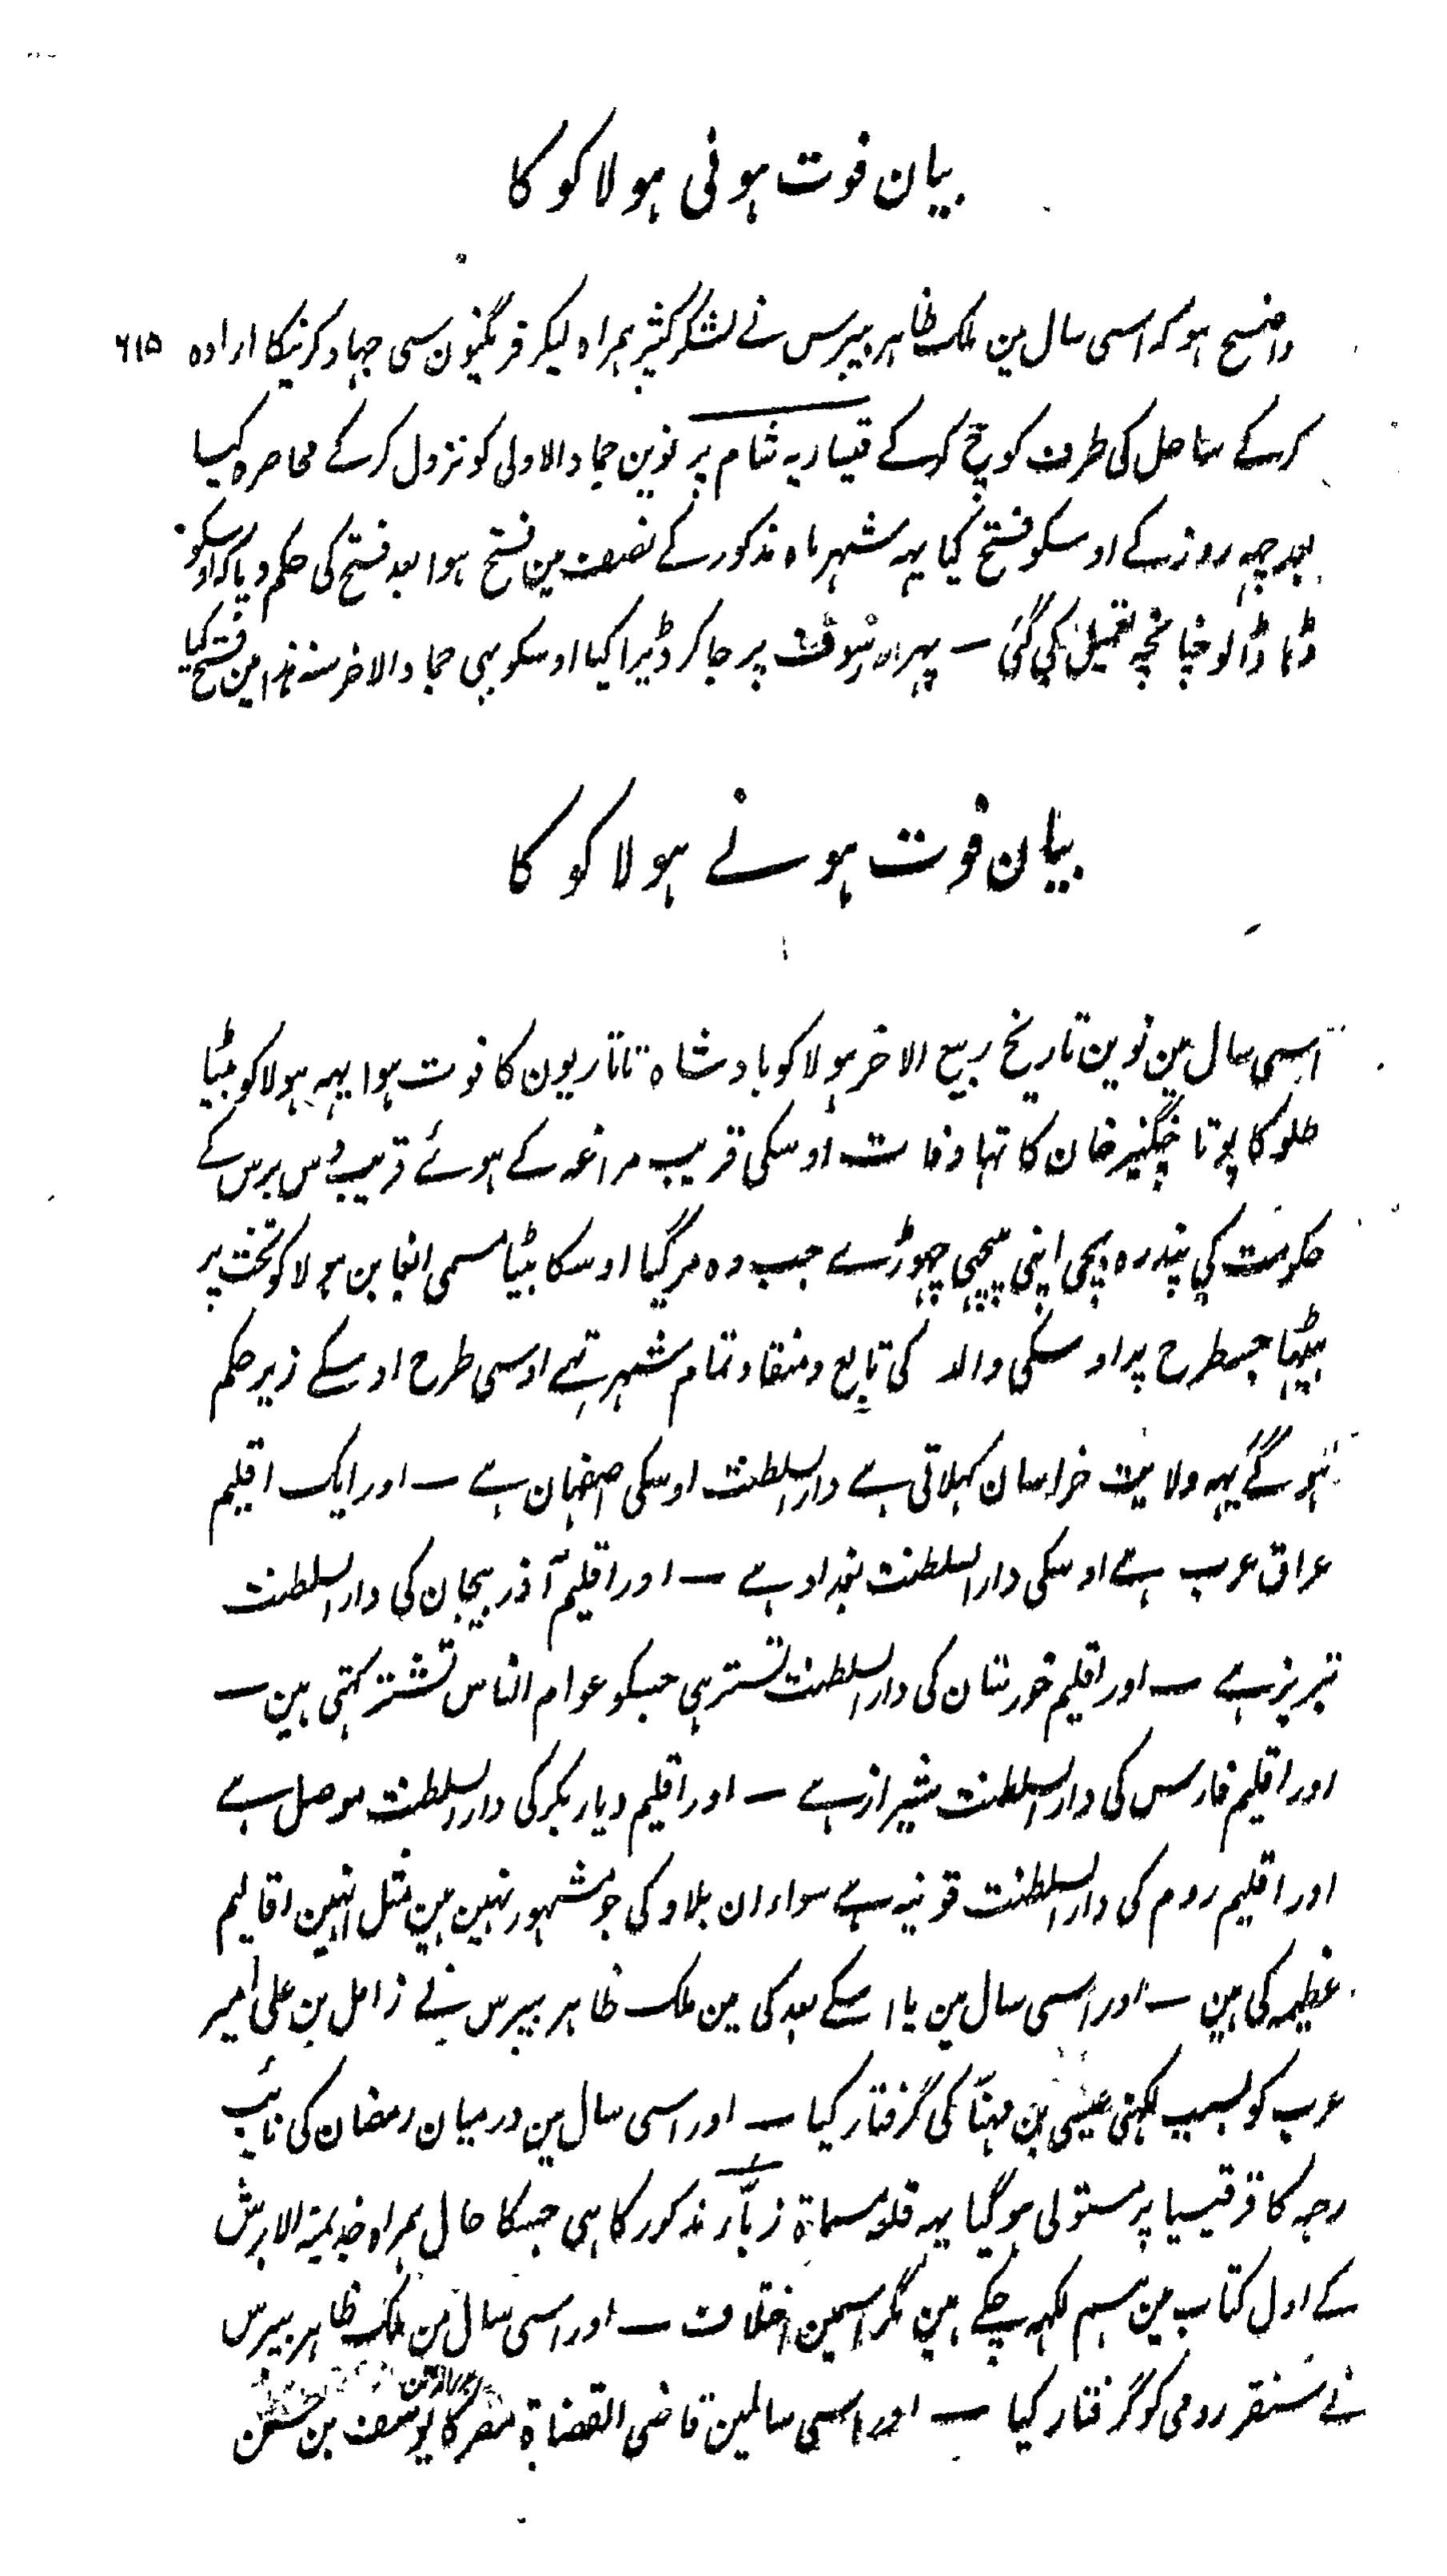 بیان فوت ہونی ہولاکو کا
واضح ہو کہ اسی سال مین ملک ظاہر بیبرس نے لشکر کثیر ہمراہ لیکر فرنگیون سی جہاد کرنیکا ارادہ ۶۱۵
کرکے ساحل کی طرف کوچ کرکے قیساریہ شام پر نوین جمادالاولی کو نزول کرکے محاصرہ کیا
بعد چہہ روز کے اوسکو فتح کیا یہہ شہر ماہ مذکور کے نصف مین فتح ہوا بعد فتح کی حکم دیا کہ اوسکو
ڈہا ڈالو چنانچہ تعمیل کی گئی — پہر ارسوف پر جا کر ڈیرا کیا اوسکو بہی جمادالاخر سنہ ہذا مین فتح کیا
بیان فوت ہونے ہولاکو کا
اسی سال مین نوین تاریخ ربیع الاخر ہولاکو بادشاہ تاتاریون کا فوت ہوا یہہ ہولاکو بیٹا
طلو کا پوتا چنگیز خان کا تہا وفات اوسکی قریب مراغہ کے ہوئے قریب دس برس کے
حکومت کی پندرہ بچی اپنی پیچہی چہوڑے جب وہ مرگیا اوسکا بیٹا مسمی ابغا بن ہولاکو تخت پر
بیٹہا جسطرح پر اوسکی والد کی تابع و منقاد تمام شہر تہے اوسی طرح اوسکے زیر حکم
ہوگے یہہ ولایت خراسان کہلاتی ہے دارالسلطنت اوسکی اصفہان ہے — اور ایک اقلیم
عراق عرب ہے اوسکی دارالسلطنت بغداد ہے — اور اقلیم آذربیجان کی دارالسلطنت
تبریز ہے — اور اقلیم خورستان کی دارالسلطنت تستر ہی جسکو عوام الناس تشتر کہتی ہین —
اور اقلیم فارس کی دارالسلطنت شیراز ہے — اور اقلیم دیاربکر کی دارالسلطنت موصل ہے
اور اقلیم روم کی دارالسلطنت قونیہ ہے سواء ان بلاد کی جو مشہور نہین ہین مثل انہین اقالیم
عظیمہ کی ہین — اور اسی سال مین یا اسکے بعد کی مین ملک ظاہر بیبرس نے زامل بن علی امیر
عرب کو بسبب لکہنی عیسی بن مہنّا کی گرفتار کیا — اور اسی سال مین درمیان رمضان کی نائب
رحبہ کا قرقیسیا پر مستولی ہوگیا یہہ قلعہ مسماۃ زبّاء مذکور کا ہی جسکا حال ہمراہ جذیمۃ الابرش
کے اول کتاب مین ہم لکہہ چکے ہین مگر اسمین اختلاف — اور اسی سال مین ملک ظاہر بیبرس
نے سنقر رومی کو گرفتار کیا — اور اسی سالمین قاضی القضاۃ مصر کا یوسف بن حسن